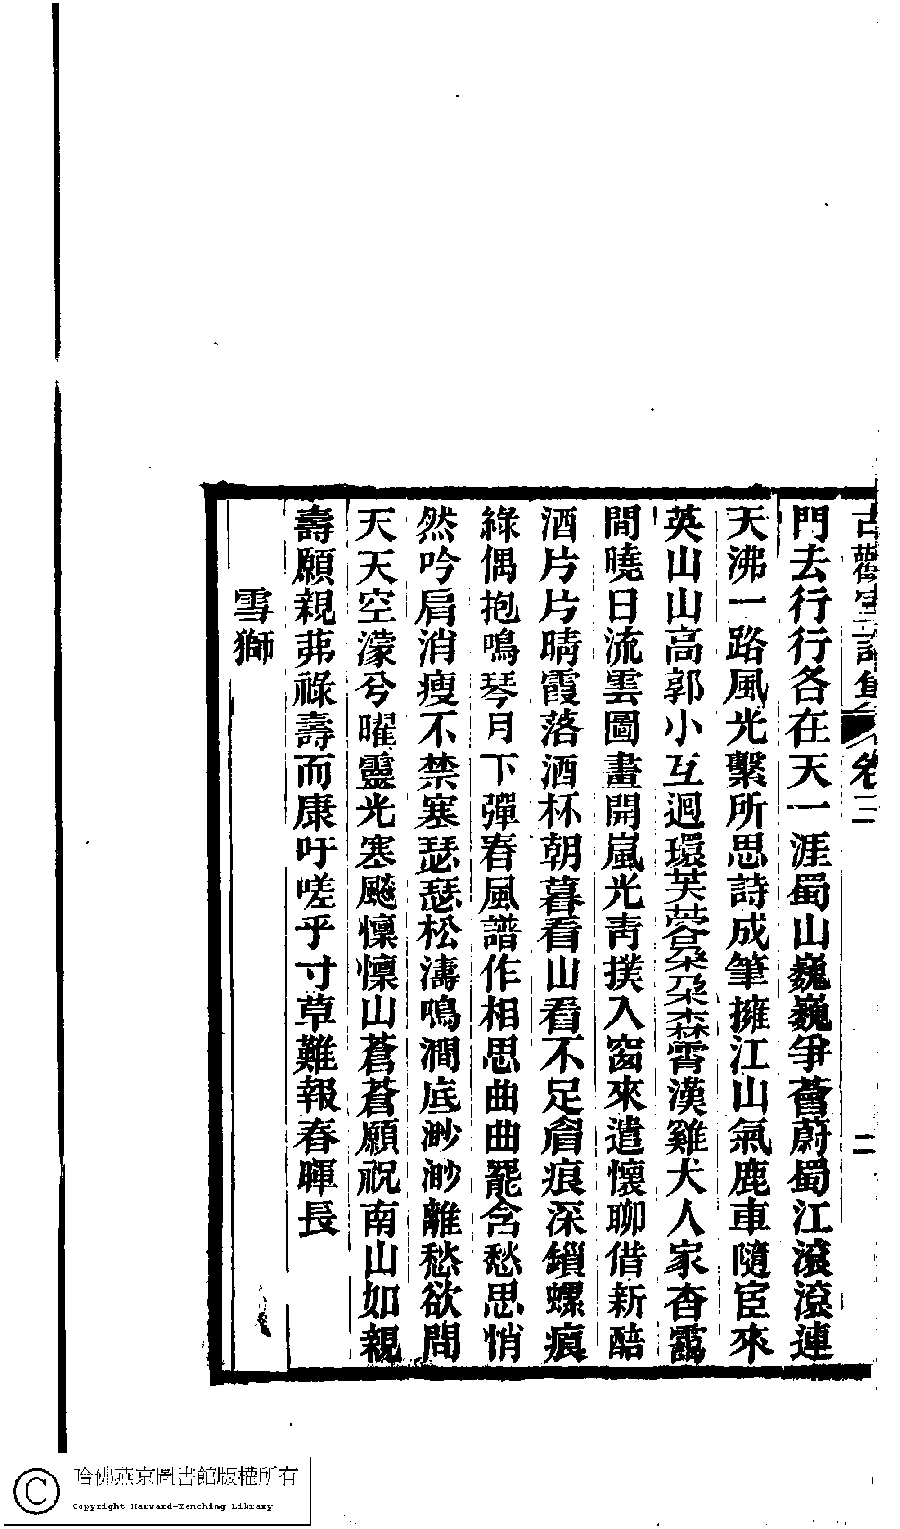 古歡室詩集 卷二 二
門去行行各在天一涯蜀山巍巍爭薈蔚蜀江滾滾連
天沸一路風光繫所思詩成筆擁江山氣鹿車隨宦來
英山山高郭小互迴環芙蓉朶朶森霄漢雞犬人家杳靄
間曉日流雲圖畫開嵐光靑撲入窗來遣懷聊借新醅
酒片片晴霞落酒杯朝暮看山看不足眉痕深鎖螺痕
綠偶抱鳴琴月下彈春風譜作相思曲曲罷含愁思悄
然吟肩消瘦不禁塞瑟瑟松濤鳴澗底渺渺離愁欲問
天天空濛兮曜靈光塞飈懍懍山蒼蒼願祝南山如親
壽願親茀祿壽而康吁嗟乎寸草難報春暉長
雪獅
哈佛燕京圖書館版權所有
Copyright Harvard-Yenching Library